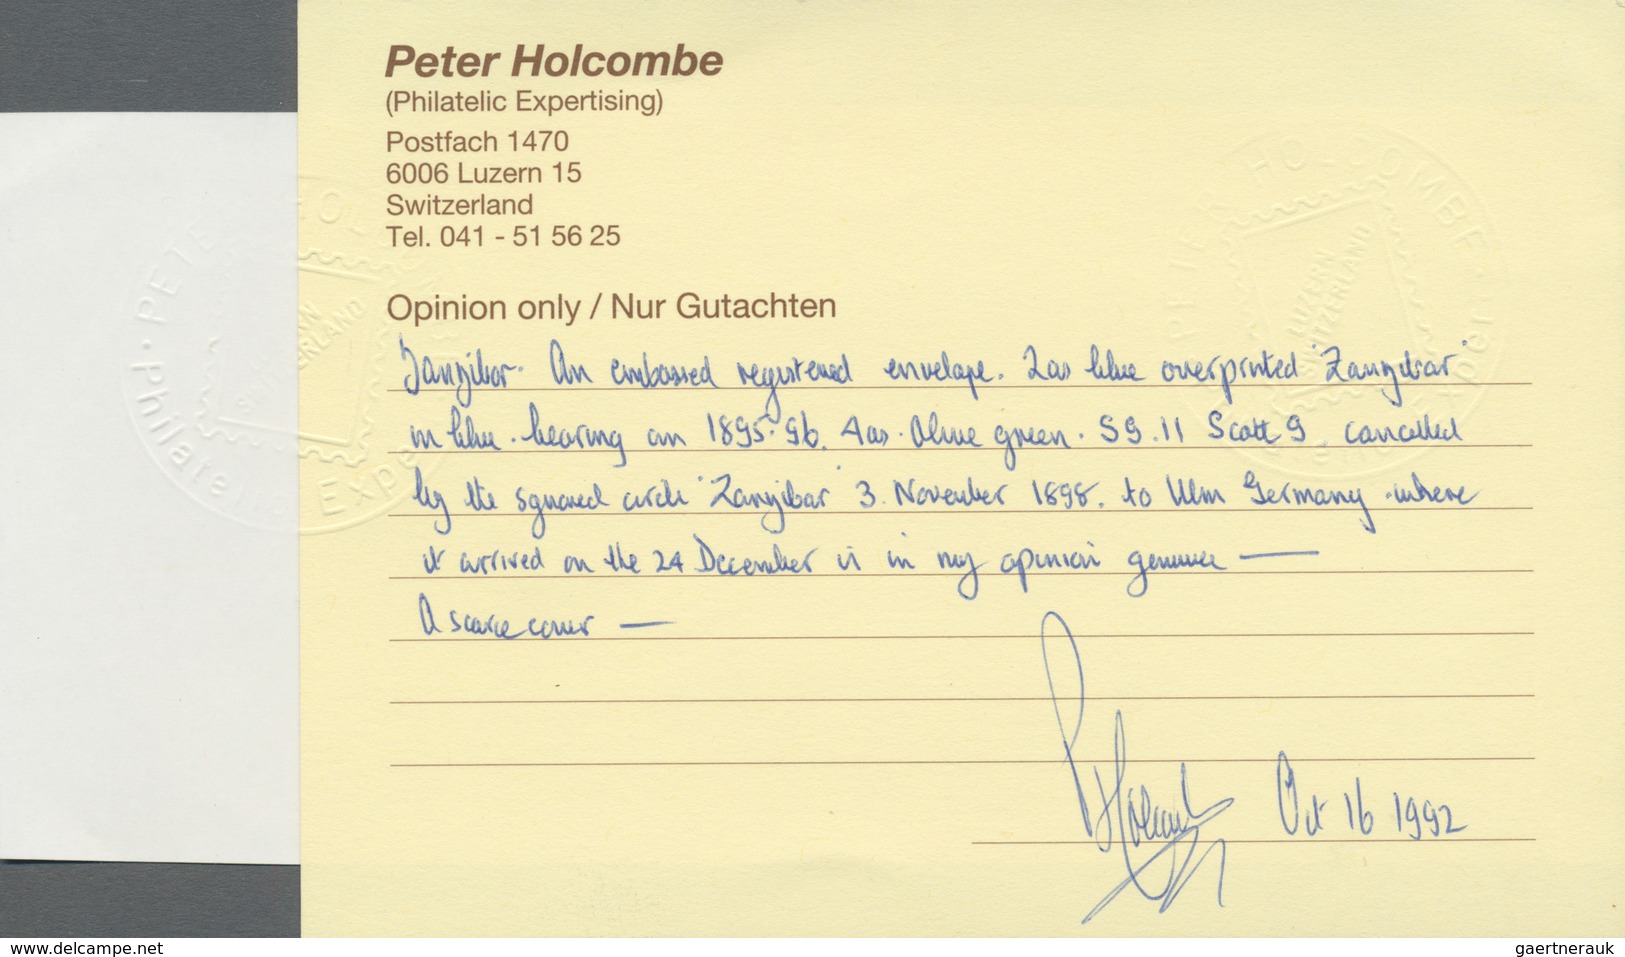 Peter Holcombe
(Philatelic Expertising)
Postfach 1470
6006 Luzern 15
Switzerland
Tel. 041 - 51 56 25
PETER HOLCOMBE
Philatelic Expertising
LUZERN
SWITZERLAND
Opinion only / Nur Gutachten
Zanzibar. An embossed registered envelope. 2as blue overprinted "Zanzibar"
in blue. bearing an 1895.96. 4as. Olive green. SG.11 Scott 9 cancelled
by the squared circle "Zanzibar" 3. November 1898. to Ulm Germany - where
it arrived on the 24 December is in my opinion genuine —
A scarce cover —
PHolcombe Oct 16 1992
www.delcampe.net
gaertnerauk